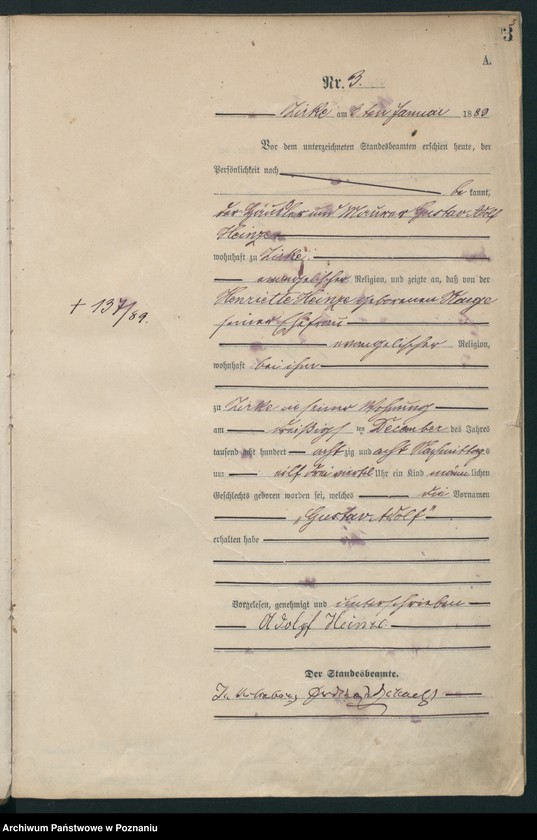 3
A.
Nr. 3.
Zirke am 2ten Januar 1889
Vor dem unterzeichneten Standesbeamten erschien heute, der
Persönlichkeit nach
be kannt,
der Häusler und Maurer Gustav Adolf
Heinze
wohnhaft zu Zirke
evangelischer Religion, und zeigte an, daß von der
Henriette Heinze geborenen
seiner Ehefrau
evangelischer Religion,
wohnhaft bei ihm
zu Zirke in seiner Wohnung
am dreißigsten December des Jahres
tausend acht hundert achtzig und acht Nachmittags
um elf drei viertel Uhr ein Kind männlichen
Geschlechts geboren worden sei, welches die Vornamen
„Gustav Adolf"
erhalten habe
+ 137/89.
Vorgelesen, genehmigt und unterschrieben
Adolf Heinze
Der Standesbeamte.
Archiwum Państwowe w Poznaniu